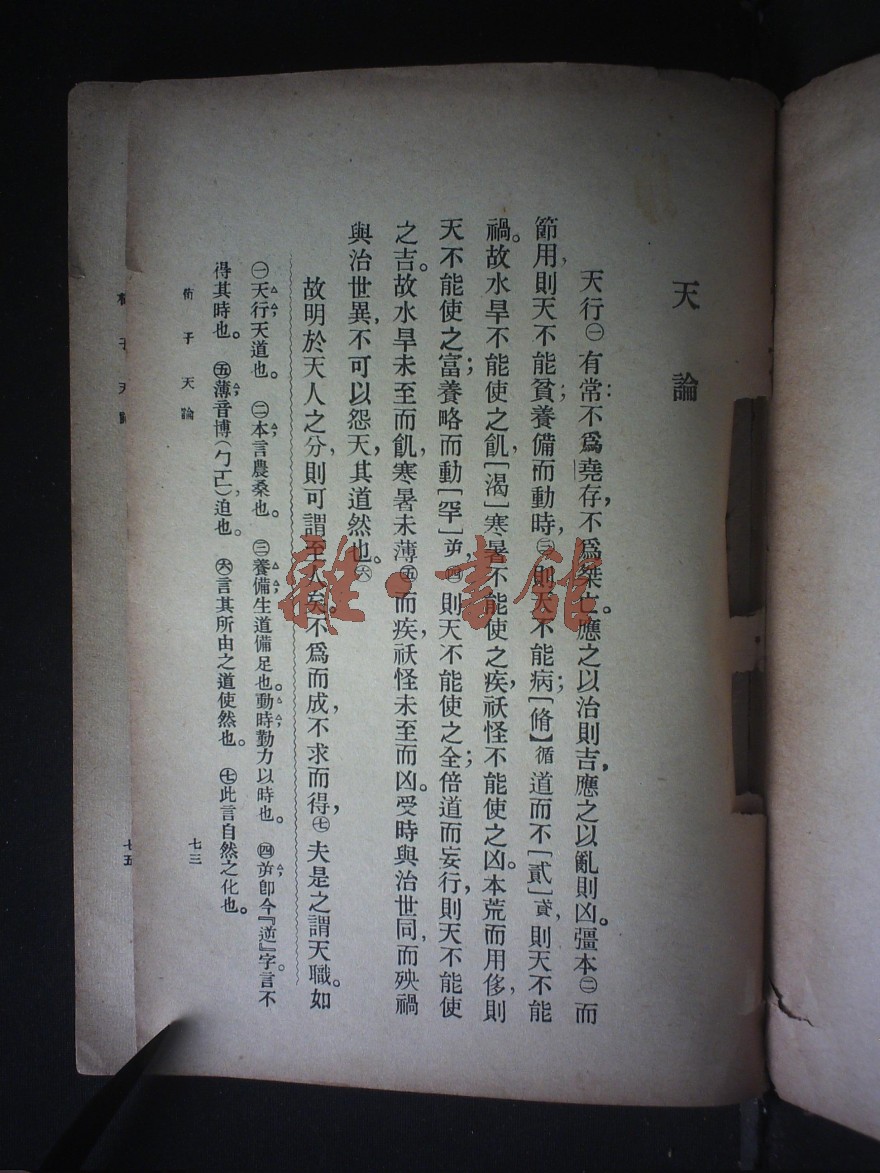 天論
天行㊀有常：不爲堯存，不爲桀亡。應之以治則吉，應之以亂則凶。彊本㊁而
節用，則天不能貧；養備而動時，㊂則天不能病；[脩]循道而不[貳]貣，則天不能
禍。故水旱不能使之飢，[渴]寒暑不能使之疾，祅怪不能使之凶。本荒而用侈，則
天不能使之富；養略而動[罕]屰，㊃則天不能使之全；倍道而妄行，則天不能使
之吉。故水旱未至而飢，寒暑未薄㊄而疾，祅怪未至而凶。受時與治世同，而殃禍
與治世異，不可以怨天，其道然也。㊅
故明於天人之分，則可謂至人矣。不爲而成，不求而得，㊆夫是之謂天職。如
㊀天行，天道也。　㊁本，言農桑也。　㊂養備，生道備足也。動時，勤力以時也。　㊃屰，卽今『逆』字。言不
得其時也。　㊄薄，音博（ㄅㄛ），迫也。　㊅言其所由之道使然也。　㊆此言自然之化也。
荀子天論
七三
七五
雜·書館